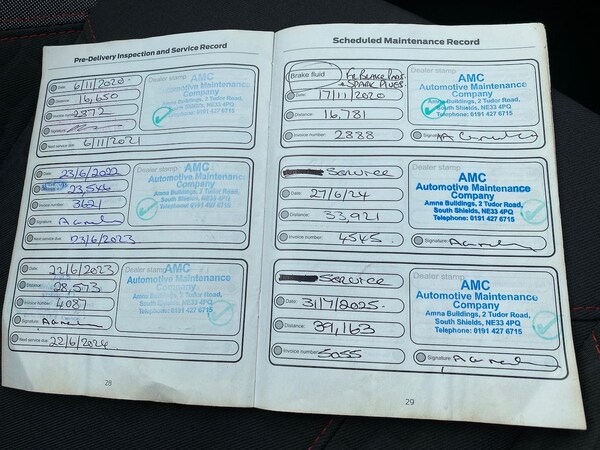 Pre-Delivery Inspection and Service Record
Date: 6/11/2020
Distance: 16,650
Invoice number: 2872
Signature:
Next service due: 6/11/2021
Dealer stamp
AMC
Automotive Maintenance
Company
Amna Buildings, 2 Tudor Road,
South Shields, NE33 4PQ
Telephone: 0191 427 6715
Date: 23/6/2022
23,546
Invoice number: 3621
Signature:
Next service due: 23/6/2023
Dealer stamp
AMC
Automotive Maintenance
Company
Amna Buildings, 2 Tudor Road,
South Shields, NE33 4PQ
Telephone: 0191 427 6715
Date: 22/6/2023
Distance: 28,573
Invoice number: 4087
Signature:
Next service due: 22/6/2024
Dealer stamp
AMC
Automotive Maintenance
Company
Amna Buildings, 2 Tudor Road,
South Shields, NE33 4PQ
Telephone: 0191 427 6715
28
Scheduled Maintenance Record
Brake fluid
+ SPARK PLUGS
Date: 17/11/2020
Distance: 16,781
Invoice number: 2888
Dealer stamp
AMC
Automotive Maintenance
Company
Amna Buildings, 2 Tudor Road,
South Shields, NE33 4PQ
Telephone: 0191 427 6715
Signature:
Service
Date: 27/6/24
Distance: 33,921
Invoice number: 4545
Dealer stamp
AMC
Automotive Maintenance
Company
Amna Buildings, 2 Tudor Road,
South Shields, NE33 4PQ
Telephone: 0191 427 6715
Signature:
Service
Date: 31/7/2025
Distance: 39,163
Invoice number: 5055
Dealer stamp
AMC
Automotive Maintenance
Company
Amna Buildings, 2 Tudor Road,
South Shields, NE33 4PQ
Telephone: 0191 427 6715
Signature:
29